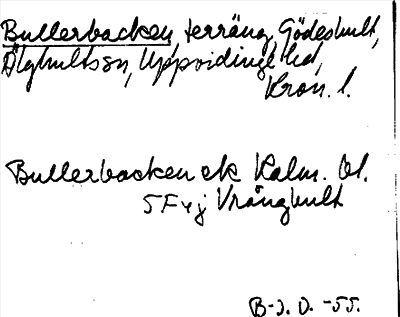 Bullerbacken, terräng, Gödeshult,
Älghults sn, Uppvidinge hd,
Kron. l.
Bullerbacken ek Kalm. bl.
5 F y j Vrånghult
B-J. O. -55.